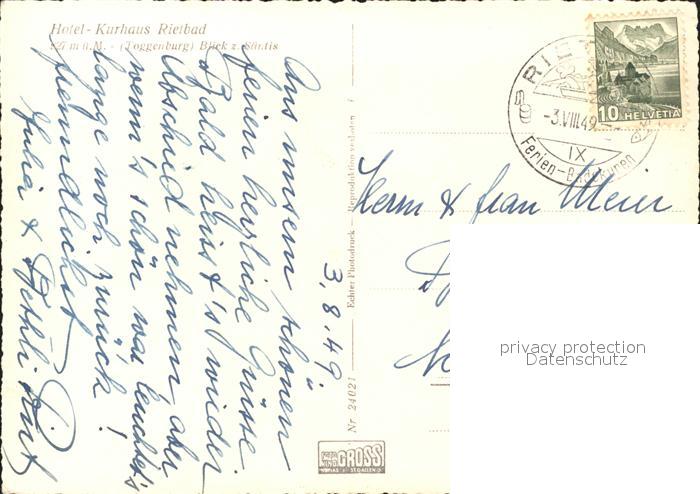 Hotel-Kurhaus Rietbad
927 m ü.M. - (Toggenburg) Blick z. Säntis
3.8.49.
Aus unserm schönen
feien herzliche Grüsse
Bald heisst's wieder
Abschied nehmen, aber
wenn's schön war leuchtet's
lange noch zurück!
freundlichst
Julia &
Nr. 24021 — Echter Photodruck — Reproduktion verboten
FOTO GROSS
ST.GALLEN
-3.VIII.49
IX
Ferien-Badekuren
10 HELVETIA
Herrn & frau Meier
privacy protection
Datenschutz